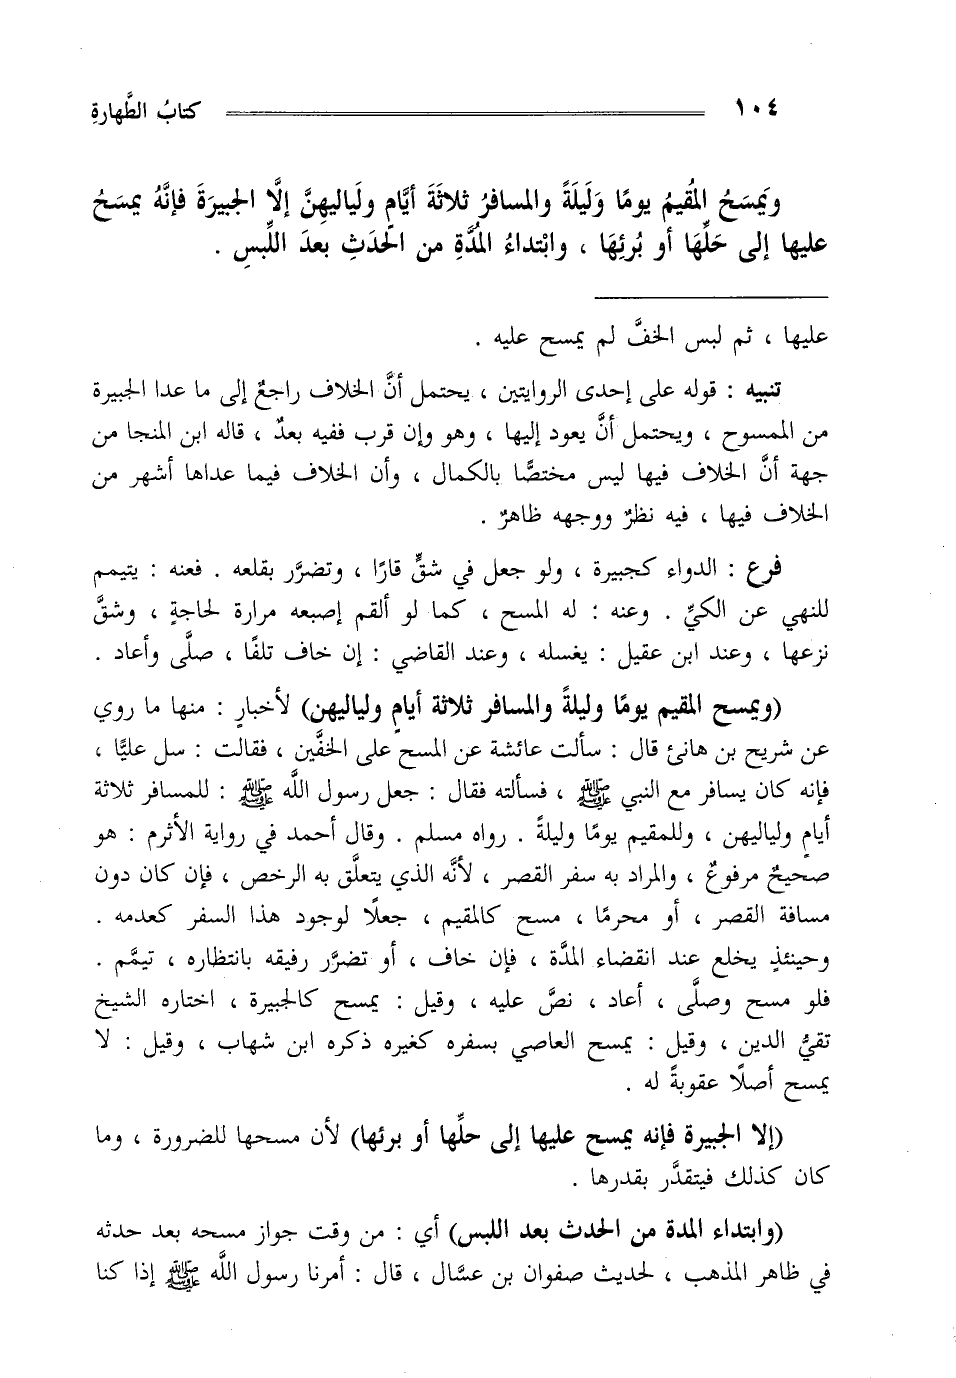 ١٠٤ كتابُ الطَّهارةِ
ويَمسَحُ المُقيمُ يومًا وَلَيلَةً والمسافرُ ثلاثَةَ أيَّامٍ ولَياليهِنَّ إلَّا الجبيرَةَ فإنَّهُ يمسَحُ
عليها إلى حَلِّهَا أو بُرئِهَا ، وابْتداءُ المُدَّةِ من الحدَثِ بعدَ اللّبسِ .
عليها ، ثم لبس الخفَّ لم يمسح عليه .
تنبيه : قوله على إحدى الروايتين ، يحتمل أنَّ الخلاف راجعٌ إلى ما عدا الجبيرة
من الممسوح ، ويحتمل أنَّ يعود إليها ، وهو وإن قرب ففيه بعدٌ ، قاله ابن المنجا من
جهة أنَّ الخلاف فيها ليس مختصًّا بالكمال ، وأن الخلاف فيما عداها أشهر من
الخلاف فيها ، فيه نظرٌ ووجهه ظاهرٌ .
فرع : الدواء كجبيرة ، ولو جعل في شقٍّ قارًا ، وتضرَّر بقلعه . فعنه : يتيمم
للنهي عن الكيِّ . وعنه : له المسح ، كما لو ألقم إصبعه مرارة لحاجةٍ ، وشقَّ
نزعها ، وعند ابن عقيل : يغسله ، وعند القاضي : إن خاف تلفًا ، صلَّى وأعاد .
(ويمسح المقيم يومًا وليلةً والمسافر ثلاثة أيامٍ ولياليهن) لأخبارٍ : منها ما روي
عن شريح بن هانئ قال : سألت عائشة عن المسح على الخفَّين ، فقالت : سل عليًّا ،
فإنه كان يسافر مع النبي ﷺ ، فسألته فقال : جعل رسول اللَّه ﷺ : للمسافر ثلاثة
أيامٍ ولياليهن ، وللمقيم يومًا وليلةً . رواه مسلم . وقال أحمد في رواية الأثرم : هو
صحيحٌ مرفوعٌ ، والمراد به سفر القصر ، لأنَّه الذي يتعلَّق به الرخص ، فإن كان دون
مسافة القصر ، أو محرمًا ، مسح كالمقيم ، جعلًا لوجود هذا السفر كعدمه .
وحينئذٍ يخلع عند انقضاء المدَّة ، فإن خاف ، أو تضرَّر رفيقه بانتظاره ، تيمَّم .
فلو مسح وصلَّى ، أعاد ، نصَّ عليه ، وقيل : يمسح كالجبيرة ، اختاره الشيخ
تقيُّ الدين ، وقيل : يمسح العاصي بسفره كغيره ذكره ابن شهاب ، وقيل : لا
يمسح أصلًا عقوبةً له .
(إلا الجبيرة فإنه يمسح عليها إلى حلِّها أو برئها) لأن مسحها للضرورة ، وما
كان كذلك فيتقدَّر بقدرها .
(وابتداء المدة من الحدث بعد اللبس) أي : من وقت جواز مسحه بعد حدثه
في ظاهر المذهب ، لحديث صفوان بن عسَّال ، قال : أمرنا رسول اللَّه ﷺ إذا كنا